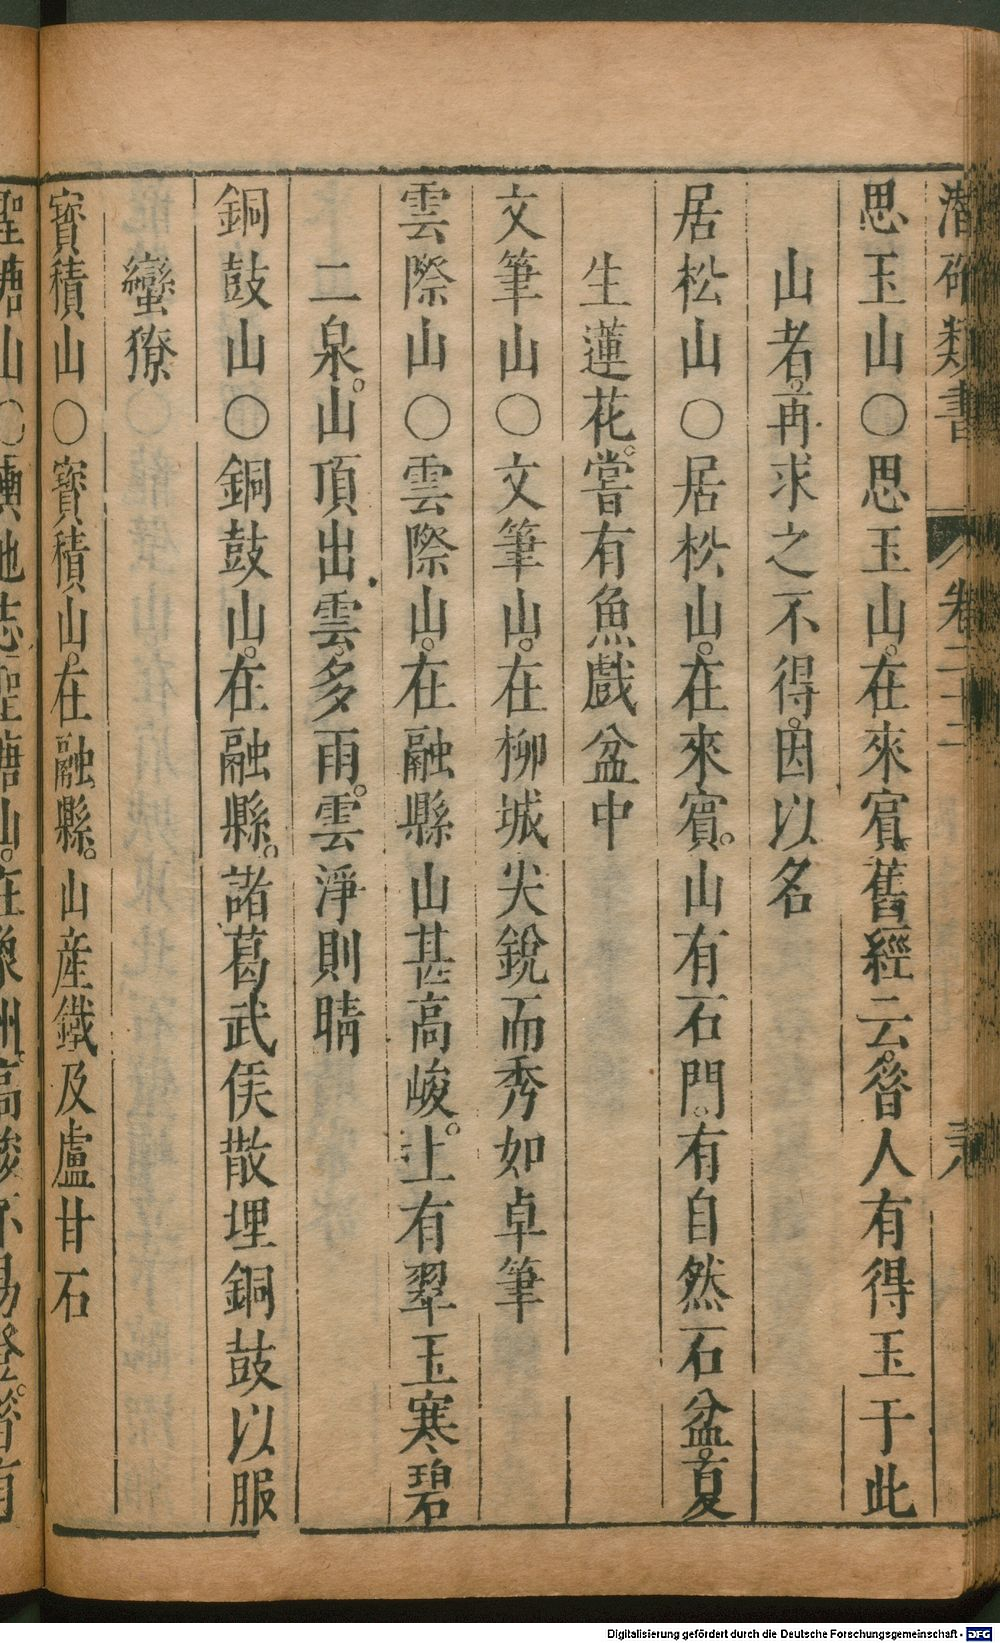 潛確類書 卷二十二
思玉山〇思玉山。在來賓。舊經云。昝人有得玉于此
山者。再求之不得。因以名
居松山〇居松山。在來賓。山有石門。有自然石盆。夏
生蓮花。嘗有魚戲盆中
文筆山〇文筆山。在柳城尖銳而秀如卓筆
雲際山〇雲際山。在融縣山甚高峻。上有翠玉寒碧
二泉。山頂出雲。多雨。雲淨則晴
銅鼓山〇銅鼓山。在融縣。諸葛武侯散埋銅鼓以服
蠻獠
寶積山〇寶積山。在融縣。山産鐵及盧甘石
聖塘山〇輿地志聖塘山。在象州高峻不易登。昝有
Digitalisierung gefördert durch die Deutsche Forschungsgemeinschaft - DFG